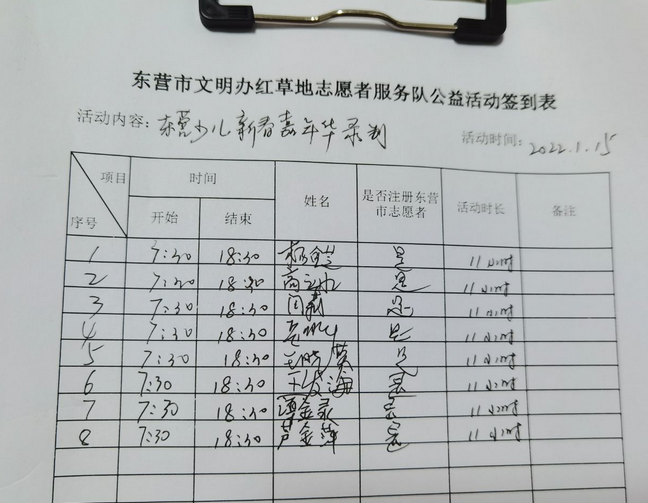 东营市文明办红草地志愿者服务队公益活动签到表
活动内容：东营少儿新春嘉年华录制 活动时间：2022.1.15
项目 序号 时间 开始 结束 姓名 是否注册东营市志愿者 活动时长 备注
1 7:30 18:30 是 11小时
2 7:30 18:30 是 11小时
3 7:30 18:30 是 11小时
4 7:30 18:30 是 11小时
5 7:30 18:30 是 11小时
6 7:30 18:30 是 11小时
7 7:30 18:30 是 11小时
8 7:30 18:30 芦金萍 是 11小时